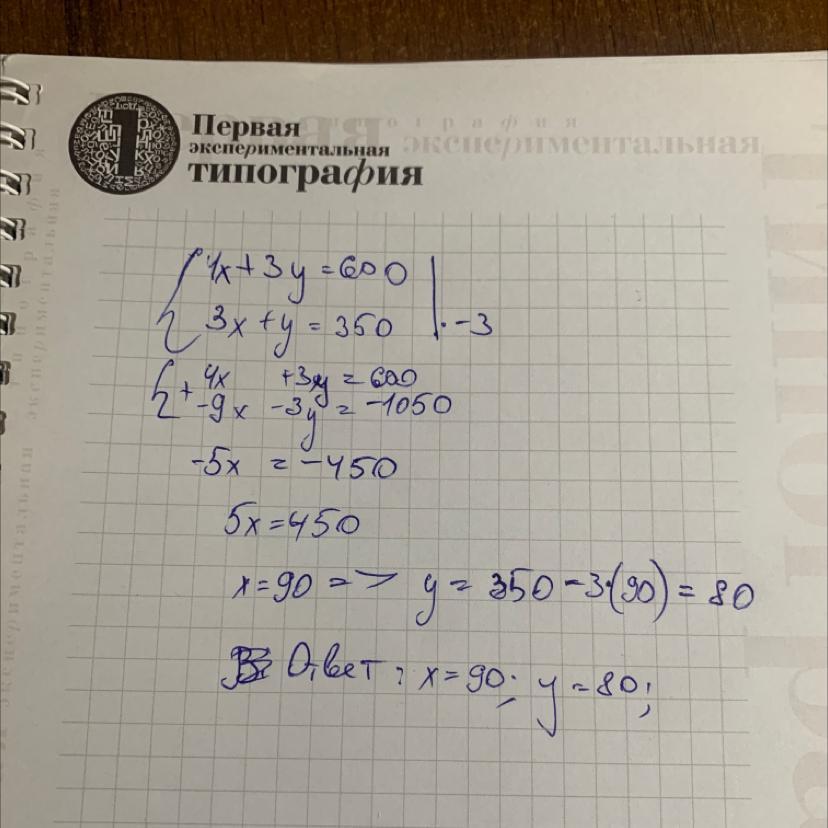 Первая
экспериментальная
типография
4x + 3y = 600
3x + y = 350 | · -3
+ 4x + 3y = 600
-9x - 3y = -1050
-5x = -450
5x = 450
x = 90 => y = 350 - 3·(90) = 80
Ответ: x = 90; y = 80;